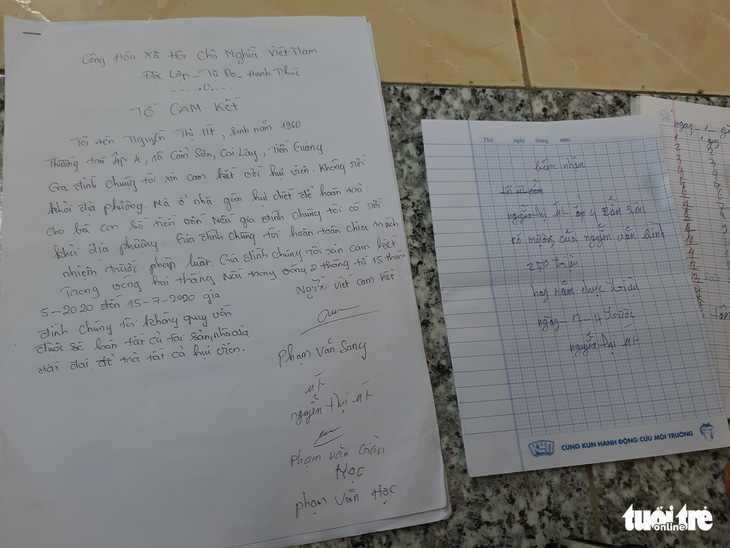 Cộng Hòa Xã Hội Chủ Nghĩa Việt Nam
Độc Lập - Tự Do - Hạnh Phúc
TỜ CAM KẾT
Tôi tên Nguyễn Thị Út, sinh năm 1960
Thường trú ấp 4, xã Cẩm Sơn, Cai Lậy, Tiền Giang
Gia đình chúng tôi xin cam kết với hụi viên. Không rời
khỏi địa phương. Mà ở nhà gom hụi chết để hoàn trả
cho bà con số tiền vốn. Nếu gia đình chúng tôi có rời
khỏi địa phương. Gia đình chúng tôi hoàn toàn chịu trách
nhiệm trước pháp luật. Gia đình chúng tôi xin cam kết
Trong vòng hai tháng. Nếu trong vòng 2 tháng từ 15 tháng
5-2020 đến 15-7-2020 gia
đình chúng tôi không quy vốn
được sẽ bán tất cả tài sản, nhà cửa
đất đai để trả tất cả hụi viên.
Người viết cam kết
Phạm Văn Sang
Út
nguyễn thị Út
phạm văn Giàu
Học
phạm văn Học
Thứ ngày tháng năm
biên nhận
nguyễn thị út ấp 4 cẩm sơn
có mượn của nguyễn văn
250 triệu
hai năm chục triệu
ngày-13-14
nguyễn thị út
CÙNG KUN HÀNH ĐỘNG CỨU MÔI TRƯỜNG
ngày-1-
tuổi trẻ
online